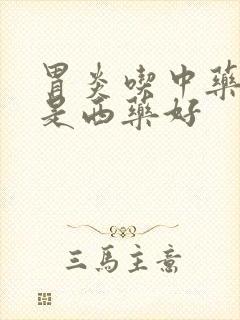 胃炎喫中藥
是西藥好
三馬主意